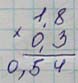 1,8
× 0,3
0,54